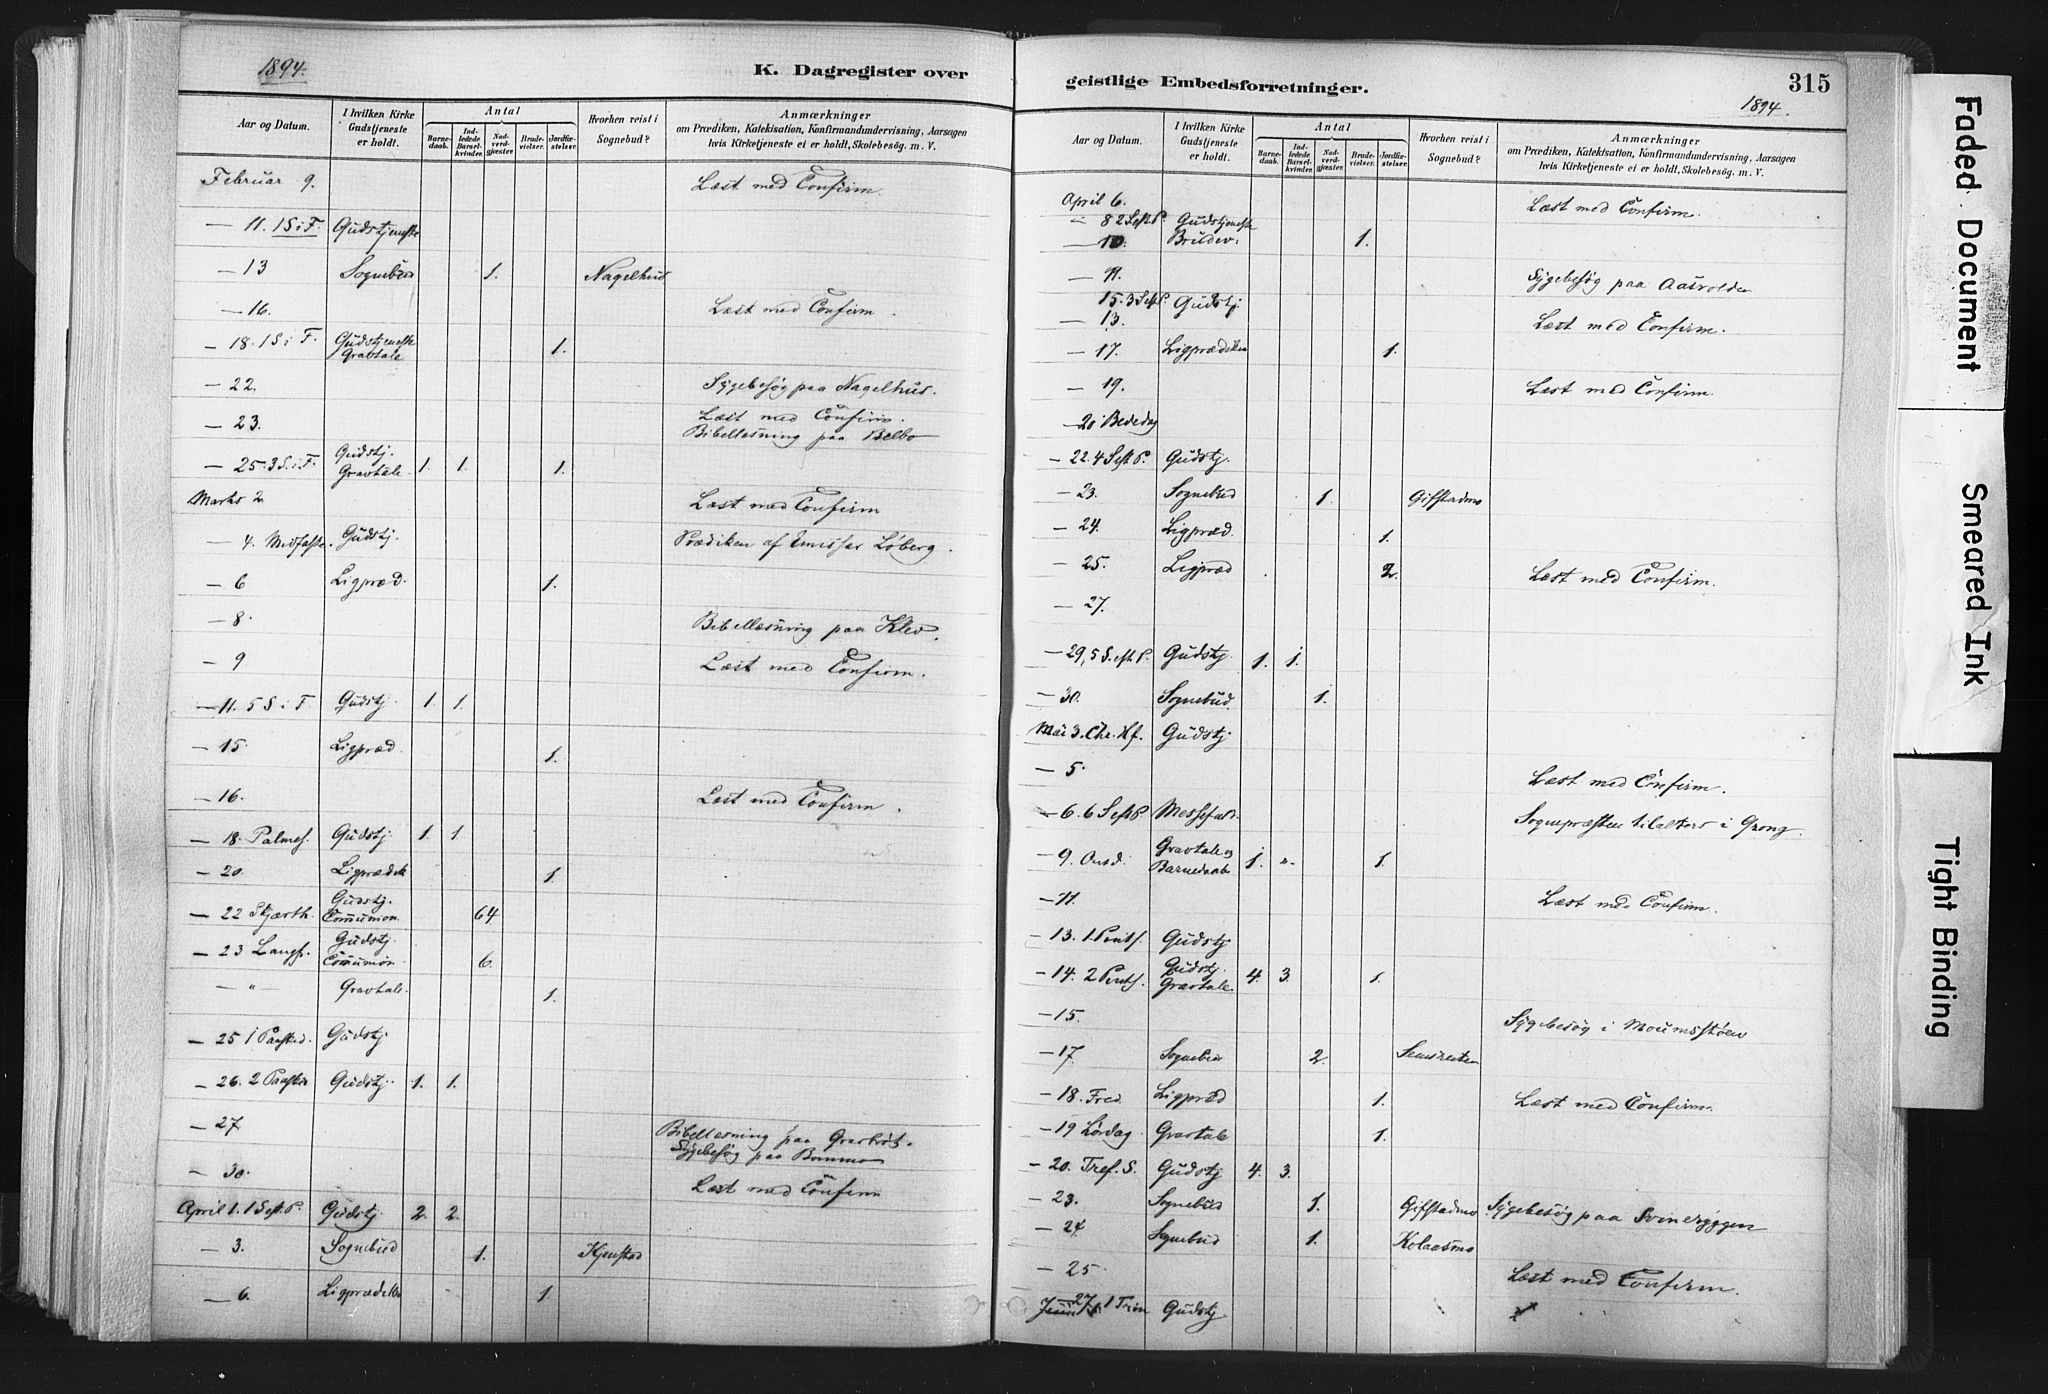 1894.
K. Dagregister over
Aar og Datum.
I hvilken Kirke Gudstjeneste er holdt.
Antal
Barne-daab.
Ind-ledede Barsel-kvinder.
Nad-verd-gjæster.
Brude-vielser.
Jordfæ-stelser.
Hvorhen reist i Sognebud?
Anmærkninger
om Prædiken, Katekisation, Konfirmandundervisning, Aarsagen
hvis Kirketjeneste ei er holdt, Skolebesög. m. V.
Februar 9. Læst med Confirm
— 11. 1 S i F. Gudstjeneste
— 13 Sognebud 1. Nagelhus
— 16. Læst med Confirm.
— 18. 1 S i F. Gudstjeneste
Gravtale 1.
— 22. Sÿgebesøg paa Nagelhus.
— 23. Læst med Confirm.
Bibellæsning paa Belbo
— 25. 3 S. i F. Gudstj.
Gravtale. 1. 1. 1.
Marts 2 Læst med Confirm
— 4. Midfaste. Gudstj. Prædiken af Emissær Løberg.
— 6 Ligpræd. 1.
— 8. Bibellæsning paa Klev.
— 9 Læst med Confirm.
— 11. 5 S i F Gudstj. 1. 1.
— 15. Ligpræd. 1.
— 16. Læst med Confirm.
— 18. Palmes. Gudstj. 1. 1.
— 20. Ligprædik 1.
— 22 Skjærth. Gudstj.
Communion. 64
— 23 Langf. Gudstj.
Communion. 6.
— " — Gravtale. 1.
— 25 1 Paasked. Gudstj
— 26. 2 Paaskd Gudstj. 1. 1.
— 27 Bibellæsning paa
Sÿgebesøg paa
— 30. Læst med Confirm
April 1. 1 S. eft. P. Gudstj. 2. 2.
— 3. Sognebud 1. Kjenstad
— 6. Ligprædiken 1.
geistlige Embedsforretninger.
315
1894.
Aar og Datum.
I hvilken Kirke Gudstjeneste er holdt.
Antal
Barne-daab.
Ind-ledede Barsel-kvinder.
Nad-verd-gjæster.
Brude-vielser.
Jordfæ-stelser.
Hvorhen reist i Sognebud?
Anmærkninger
om Prædiken, Katekisation, Konfirmandundervisning, Aarsagen
hvis Kirketjeneste ei er holdt, Skolebesög. m. V.
April 6. Læst med Confirm.
— 8 2 S eft P. Gudstjeneste
— 10. Brudev: 1.
— 11. Sÿgebesøg paa
— 15. 3 S eft P. Gudstj.
— 13. Læst med Confirm.
— 17. Ligprædiken 1.
— 19. Læst med Confirm.
— 20 Bededag
— 22. 4 S eft P. Gudstj.
— 23. Sognebud 1. Gifstadmo
— 24. Ligpræd. 1.
— 25. Ligpræd 2. Læst med Confirm.
— 27.
— 29, 5 S. eft. P. Gudstj. 1. 1.
— 30. Sognebud. 1.
Mai 3. Chr. Hf. Gudstj
— 5 Læst med Confirm.
— 6. 6 S eft P Messefald. Sognepræsten tilalters i Grong.
— 9. Onsd. Gravtale og
Barnedaab 1. " 1.
— 11. Læst med Confirm.
— 13. 1. Pints. Gudstj
— 14. 2 Pints. Gudstj.
Gravtale. 4. 3. 1.
— 15. Sÿgebesøg i
— 17. Sognebud 2.
— 18. Fred Ligpræd 1. Læst med Confirm.
— 19 Lørdag Gravtale 1.
— 20. Tref. S. Gudstj 4. 3.
— 23. Sognebud 1. Gifstadmo. Sÿgebesøg paa Svinerÿggen
— 24. Sognebud 1. Kolaasmo
— 25 Læst med Confirm.
27 1 Trin Gudstj
Faded Document
Smeared Ink
Tight Binding